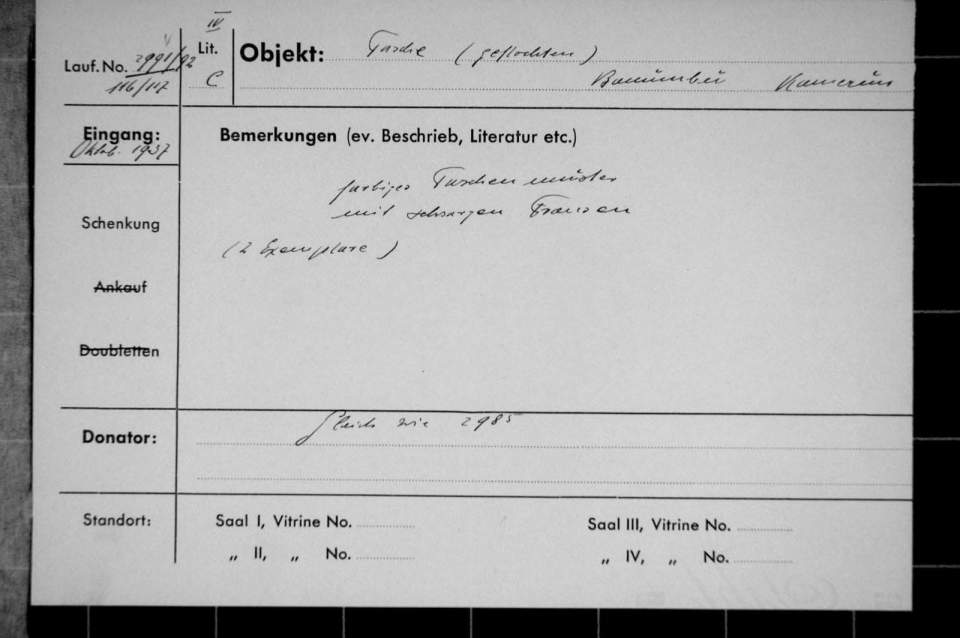 IV
Lauf. No. 2991/92
Lit.
Objekt: Tasche (geflochten)
116/117
C
Kamerun
Eingang:
Oktob. 1937
Bemerkungen (ev. Beschrieb, Literatur etc.)
farbiges Taschenmuster
mit schwarzen Fransen
Schenkung
(2 Exemplare)
Ankauf
Doubletten
Donator: Gleich wie 2985
Standort:
Saal I, Vitrine No.
Saal III, Vitrine No.
„ II, „ No.
„ IV, „ No.